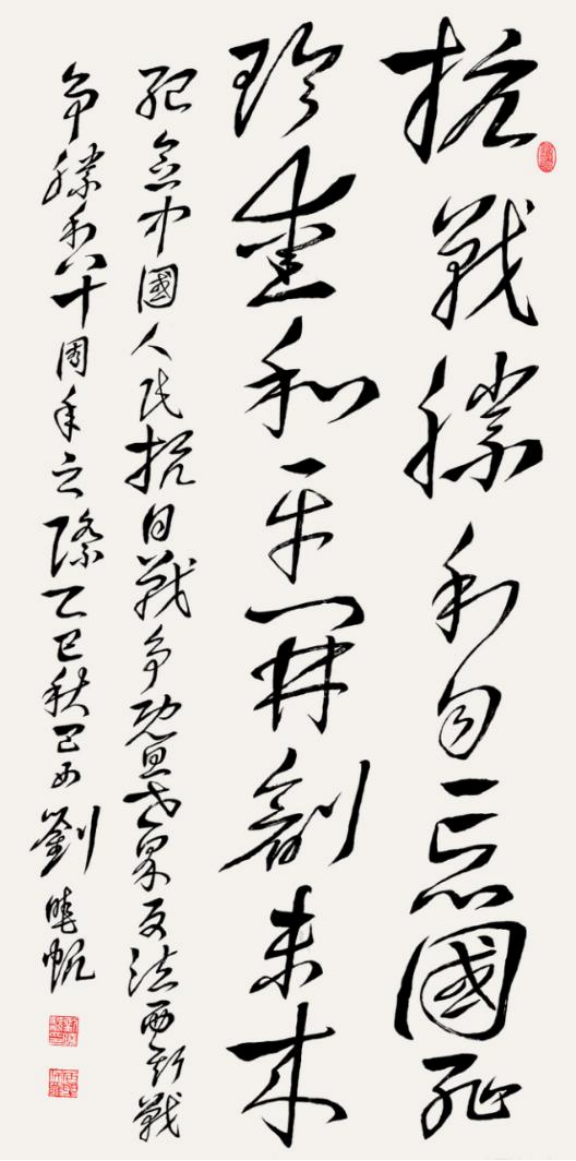 抗戰勝利勿忘國恥
珍愛和平開創未來
紀念中國人民抗日戰争暨世界反法西斯戰
争勝利八十周年之際乙巳秋劉曉帆